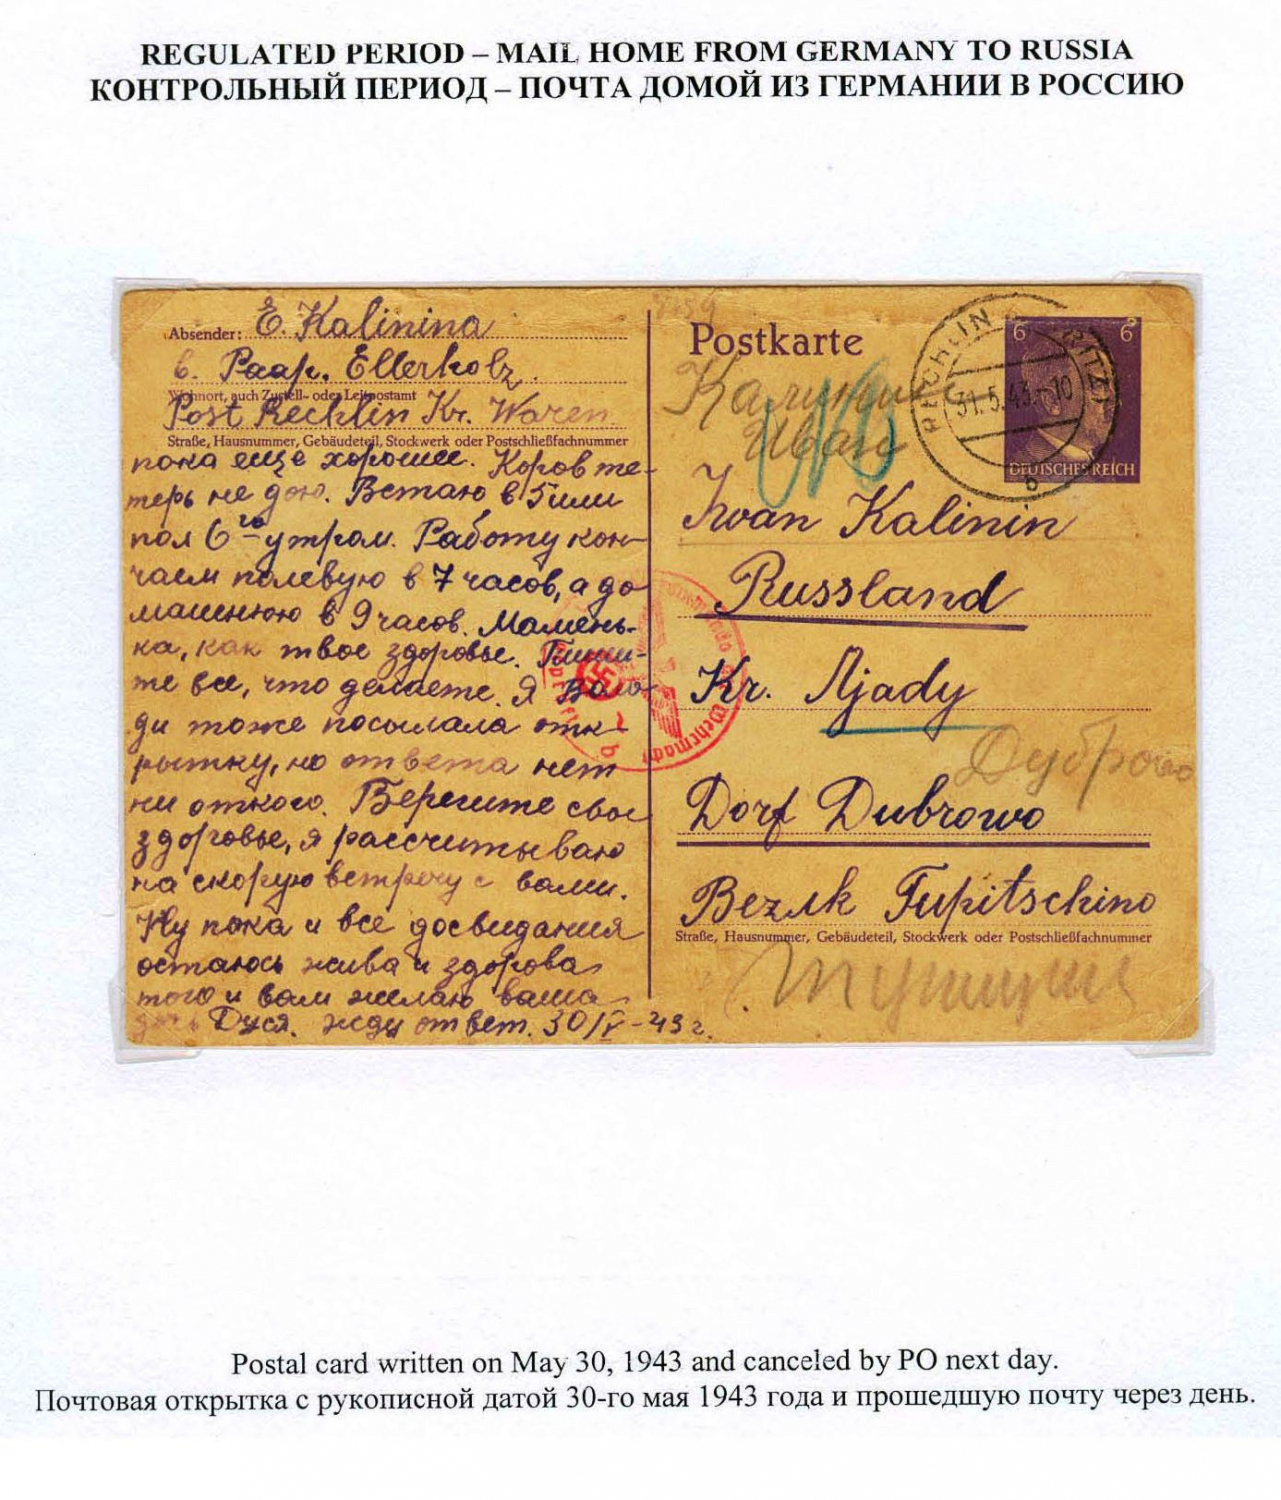 REGULATED PERIOD – MAIL HOME FROM GERMANY TO RUSSIA
КОНТРОЛЬНЫЙ ПЕРИОД – ПОЧТА ДОМОЙ ИЗ ГЕРМАНИИ В РОССИЮ
Absender: E. Kalinina
b. Paap. Ellerholz.
Wohnort, auch Zustell- oder Leitpostamt
Post Rechlin Kr. Waren
Straße, Hausnummer, Gebäudeteil, Stockwerk oder Postschließfachnummer
пока еще хорошее. Коров те-
терь не дою. Встаю в 5 или
пол 6-го утром. Работу кон-
чаем полевую в 7 часов, а до
машнюю в 9 часов. Мамень-
ка, как твое здоровье. Пиши-
те все, что делаете. Я Воло-
ди тоже посылала отк-
рытку, но ответа нет
ни от кого. Берегите свое
здоровье, я рассчитываю
на скорую встречу с вами.
Ну пока и все досвидания
остаюсь жива и здорова
того и вам желаю ваша
дочь Дуся. жду ответ. 30/V-43 г.
Postkarte
Калинин
Иван
RECHLIN (MÜRITZ)
31.5.43.-10
b
6 6
DEUTSCHES REICH
Iwan Kalinin
Russland
Kr. Ljady
Дуброво
Dorf Dubrowo
Bezirk Tupitschino
Straße, Hausnummer, Gebäudeteil, Stockwerk oder Postschließfachnummer
Wehrmacht
b
Postal card written on May 30, 1943 and canceled by PO next day.
Почтовая открытка с рукописной датой 30-го мая 1943 года и прошедшую почту через день.